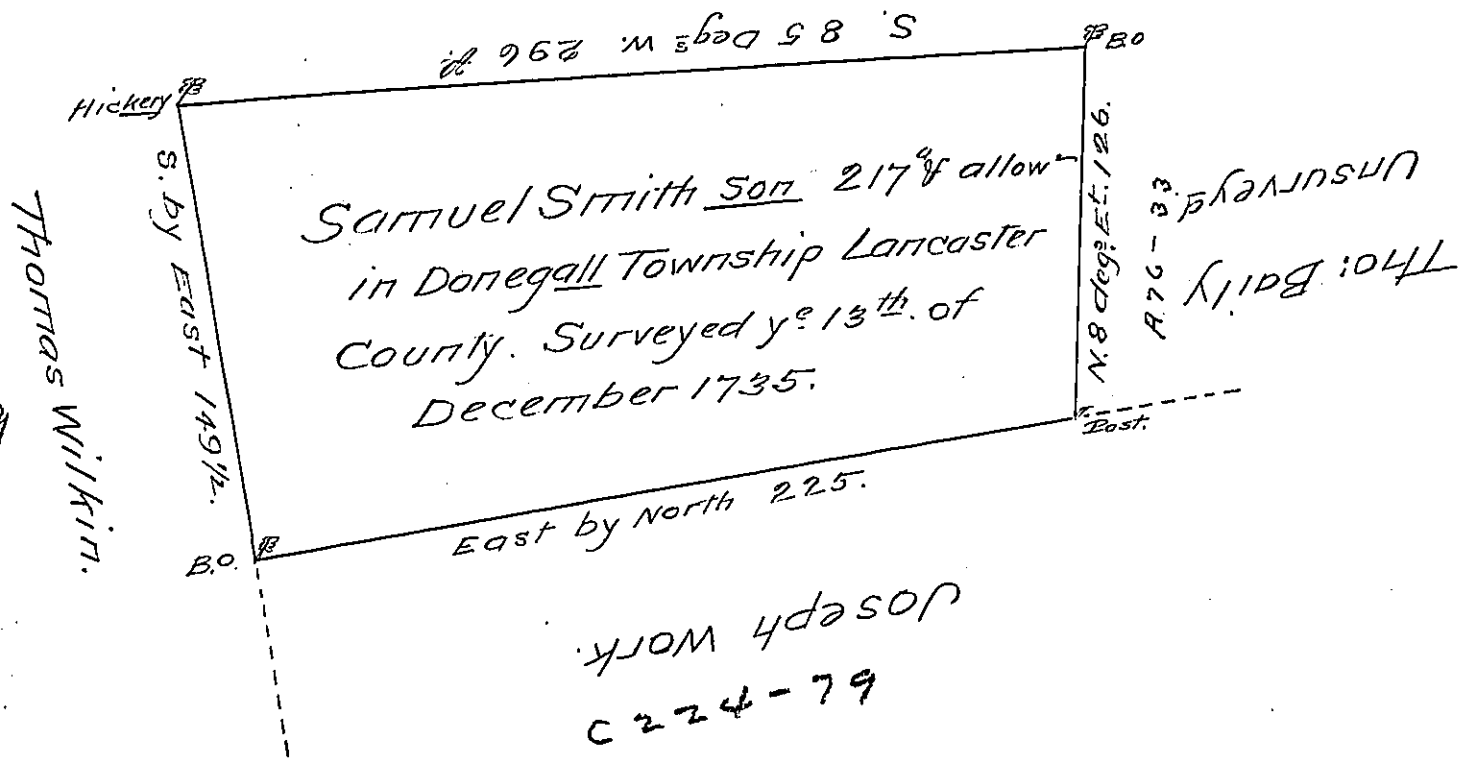 S. 85 Degs W. 296 p.
B.O
Hickery
S. by East 149½.
Thomas Wilkin.
Samuel Smith Son 217a & allow-
in Donegall Township Lancaster
County. Surveyed ye 13th. of
December 1735.
N. 8 deg: Et. 126.
A76-33
Unsurveyd
Tho: Baily
Post.
East by North 225.
B.O.
Joseph Work.
C224-79